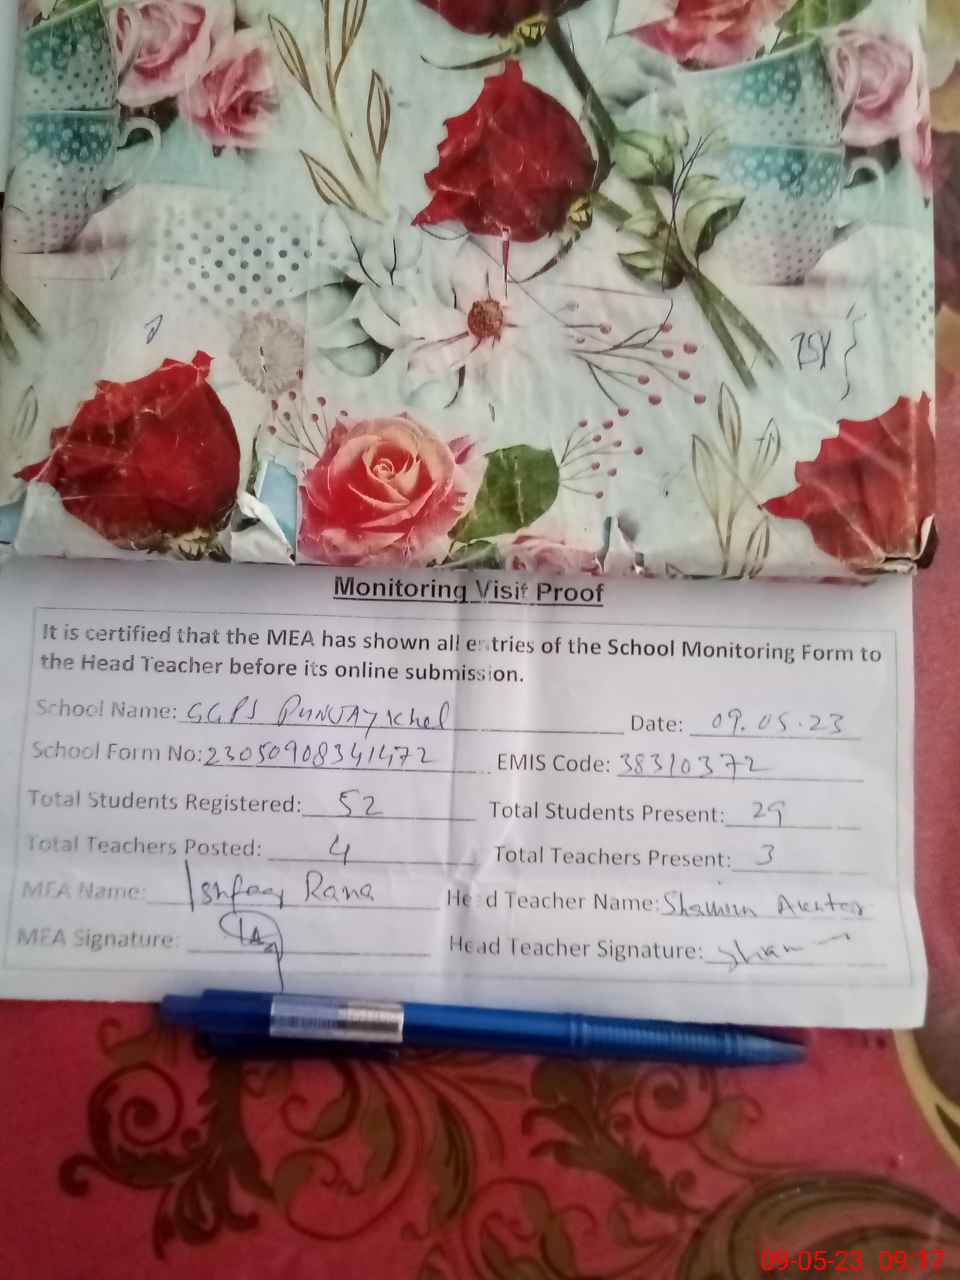 Monitoring Visit Proof
It is certified that the MEA has shown all entries of the School Monitoring Form to
the Head Teacher before its online submission.
School Name: GGPS PUNJAY Khel Date: 09.05.23
School Form No: 23050908341472 EMIS Code: 38310372
Total Students Registered: 52 Total Students Present: 29
Total Teachers Posted: 4 Total Teachers Present: 3
MEA Name: Ishfaq Rana Head Teacher Name: Shamim Akhtar
MEA Signature: Head Teacher Signature: Sham
09-05-23 09:17